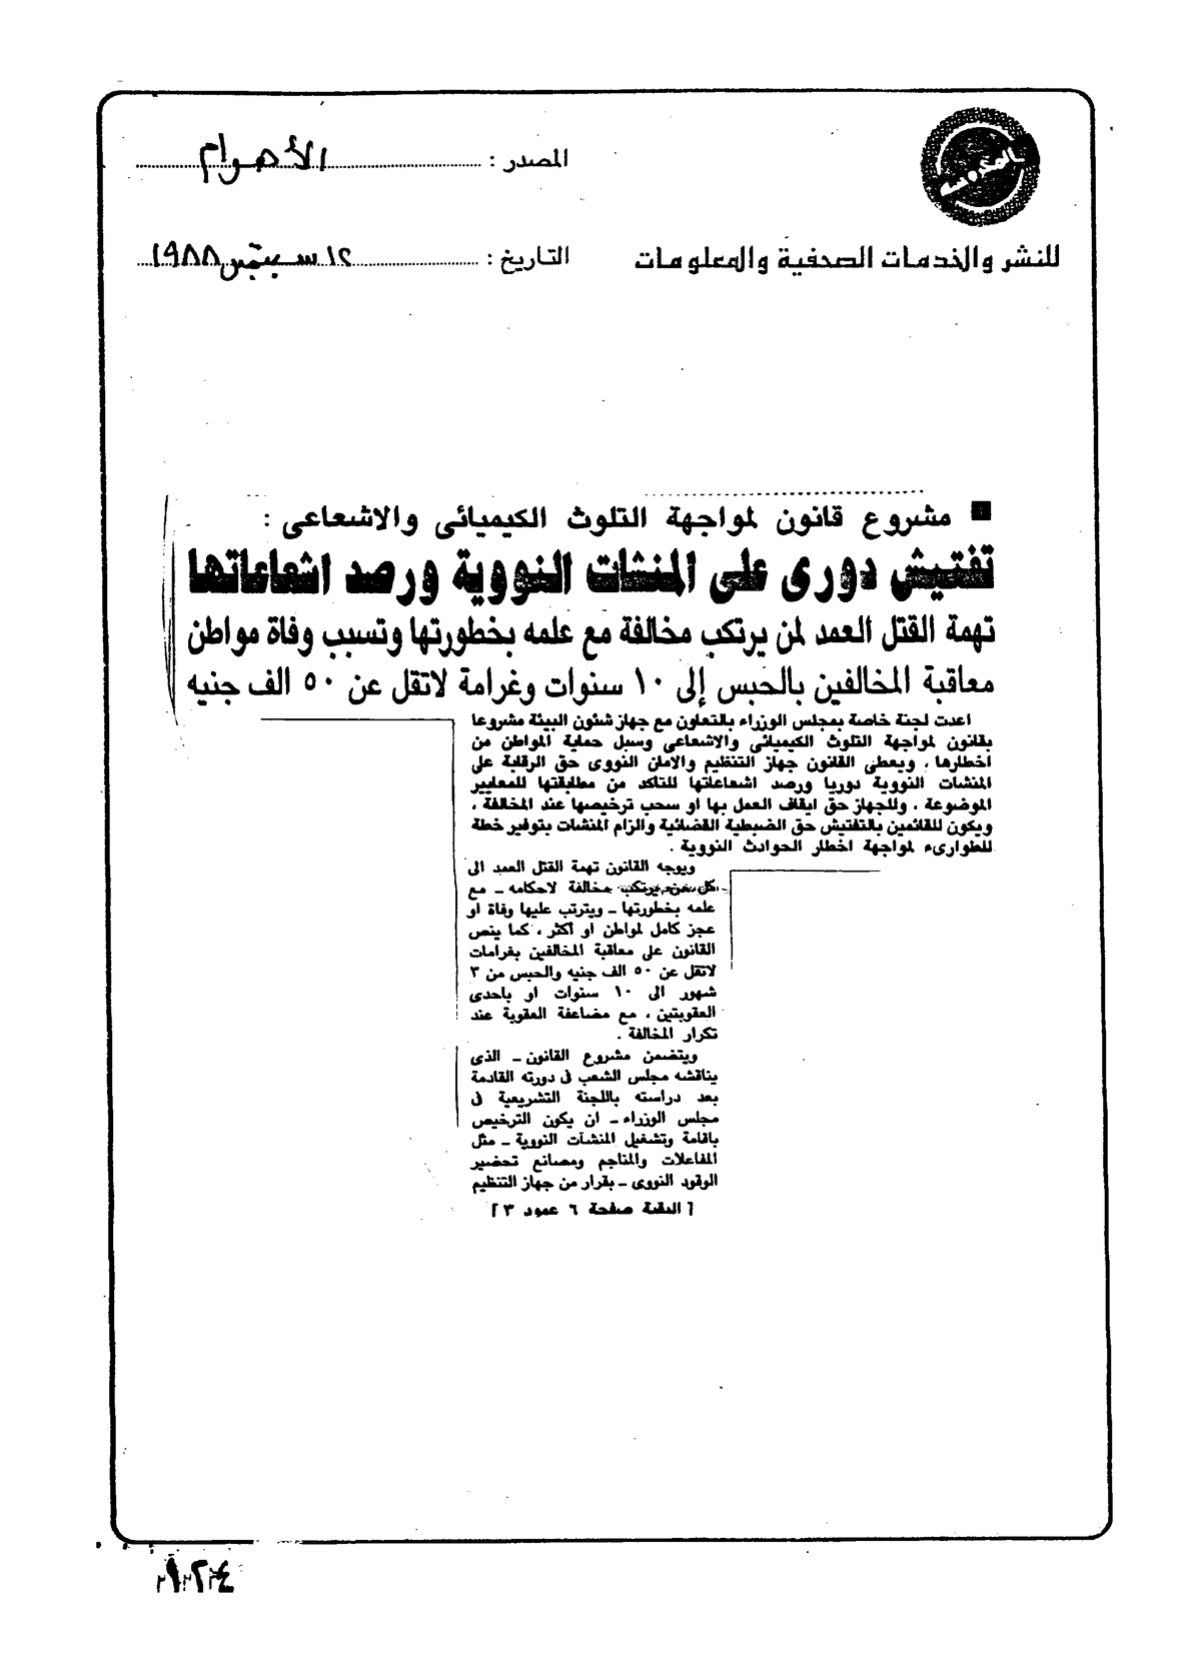 المصدر : الأهرام
للنشر والخدمات الصحفية والمعلومات
التاريخ : ١٢ سبتمبر ١٩٨٨
■ مشروع قانون لمواجهة التلوث الكيميائى والاشعاعى :
تفتيش دورى على المنشات النووية ورصد اشعاعاتها
تهمة القتل العمد لمن يرتكب مخالفة مع علمه بخطورتها وتسبب وفاة مواطن
معاقبة المخالفين بالحبس إلى ١٠ سنوات وغرامة لاتقل عن ٥٠ الف جنيه
اعدت لجنة خاصة بمجلس الوزراء بالتعاون مع جهاز شئون البيئة مشروعا
بقانون لمواجهة التلوث الكيميائى والاشعاعى وسبل حماية المواطن من
اخطارها . ويعطى القانون جهاز التنظيم والامان النووى حق الرقابة على
المنشات النووية دوريا ورصد اشعاعاتها للتاكد من مطابقتها للمعايير
الموضوعة . وللجهاز حق ايقاف العمل بها او سحب ترخيصها عند المخالفة .
ويكون للقائمين بالتفتيش حق الضبطية القضائية والزام المنشات بتوفير خطة
للطوارىء لمواجهة اخطار الحوادث النووية .
ويوجه القانون تهمة القتل العمد الى
كل من يرتكب مخالفة لاحكامه ـ مع
علمه بخطورتها ـ ويترتب عليها وفاة او
عجز كامل لمواطن او أكثر ، كما ينص
القانون على معاقبة المخالفين بغرامات
لاتقل عن ٥٠ الف جنيه والحبس من ٣
شهور الى ١٠ سنوات او باحدى
العقوبتين ، مع مضاعفة العقوبة عند
تكرار المخالفة .
ويتضمن مشروع القانون ـ الذى
يناقشه مجلس الشعب فى دورته القادمة
بعد دراسته باللجنة التشريعية فى
مجلس الوزراء ـ ان يكون الترخيص
باقامة وتشغيل المنشآت النووية ـ مثل
المفاعلات والمناجم ومصانع تحضير
الوقود النووى ـ بقرار من جهاز التنظيم
[ البقية صفحة ٦ عمود ٣ ]